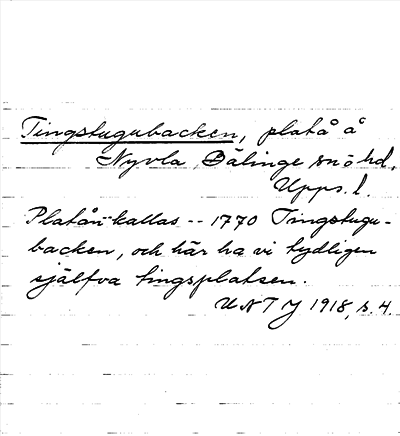 Tingstugubacken, platå å
Nyvla, Bälinge sn o hd,
Upps. l.
Platån kallas -- 1770 Tingstugu-
backen, och här ha vi tydligen
själfva tingsplatsen.
UNT J 1918, s. 4.